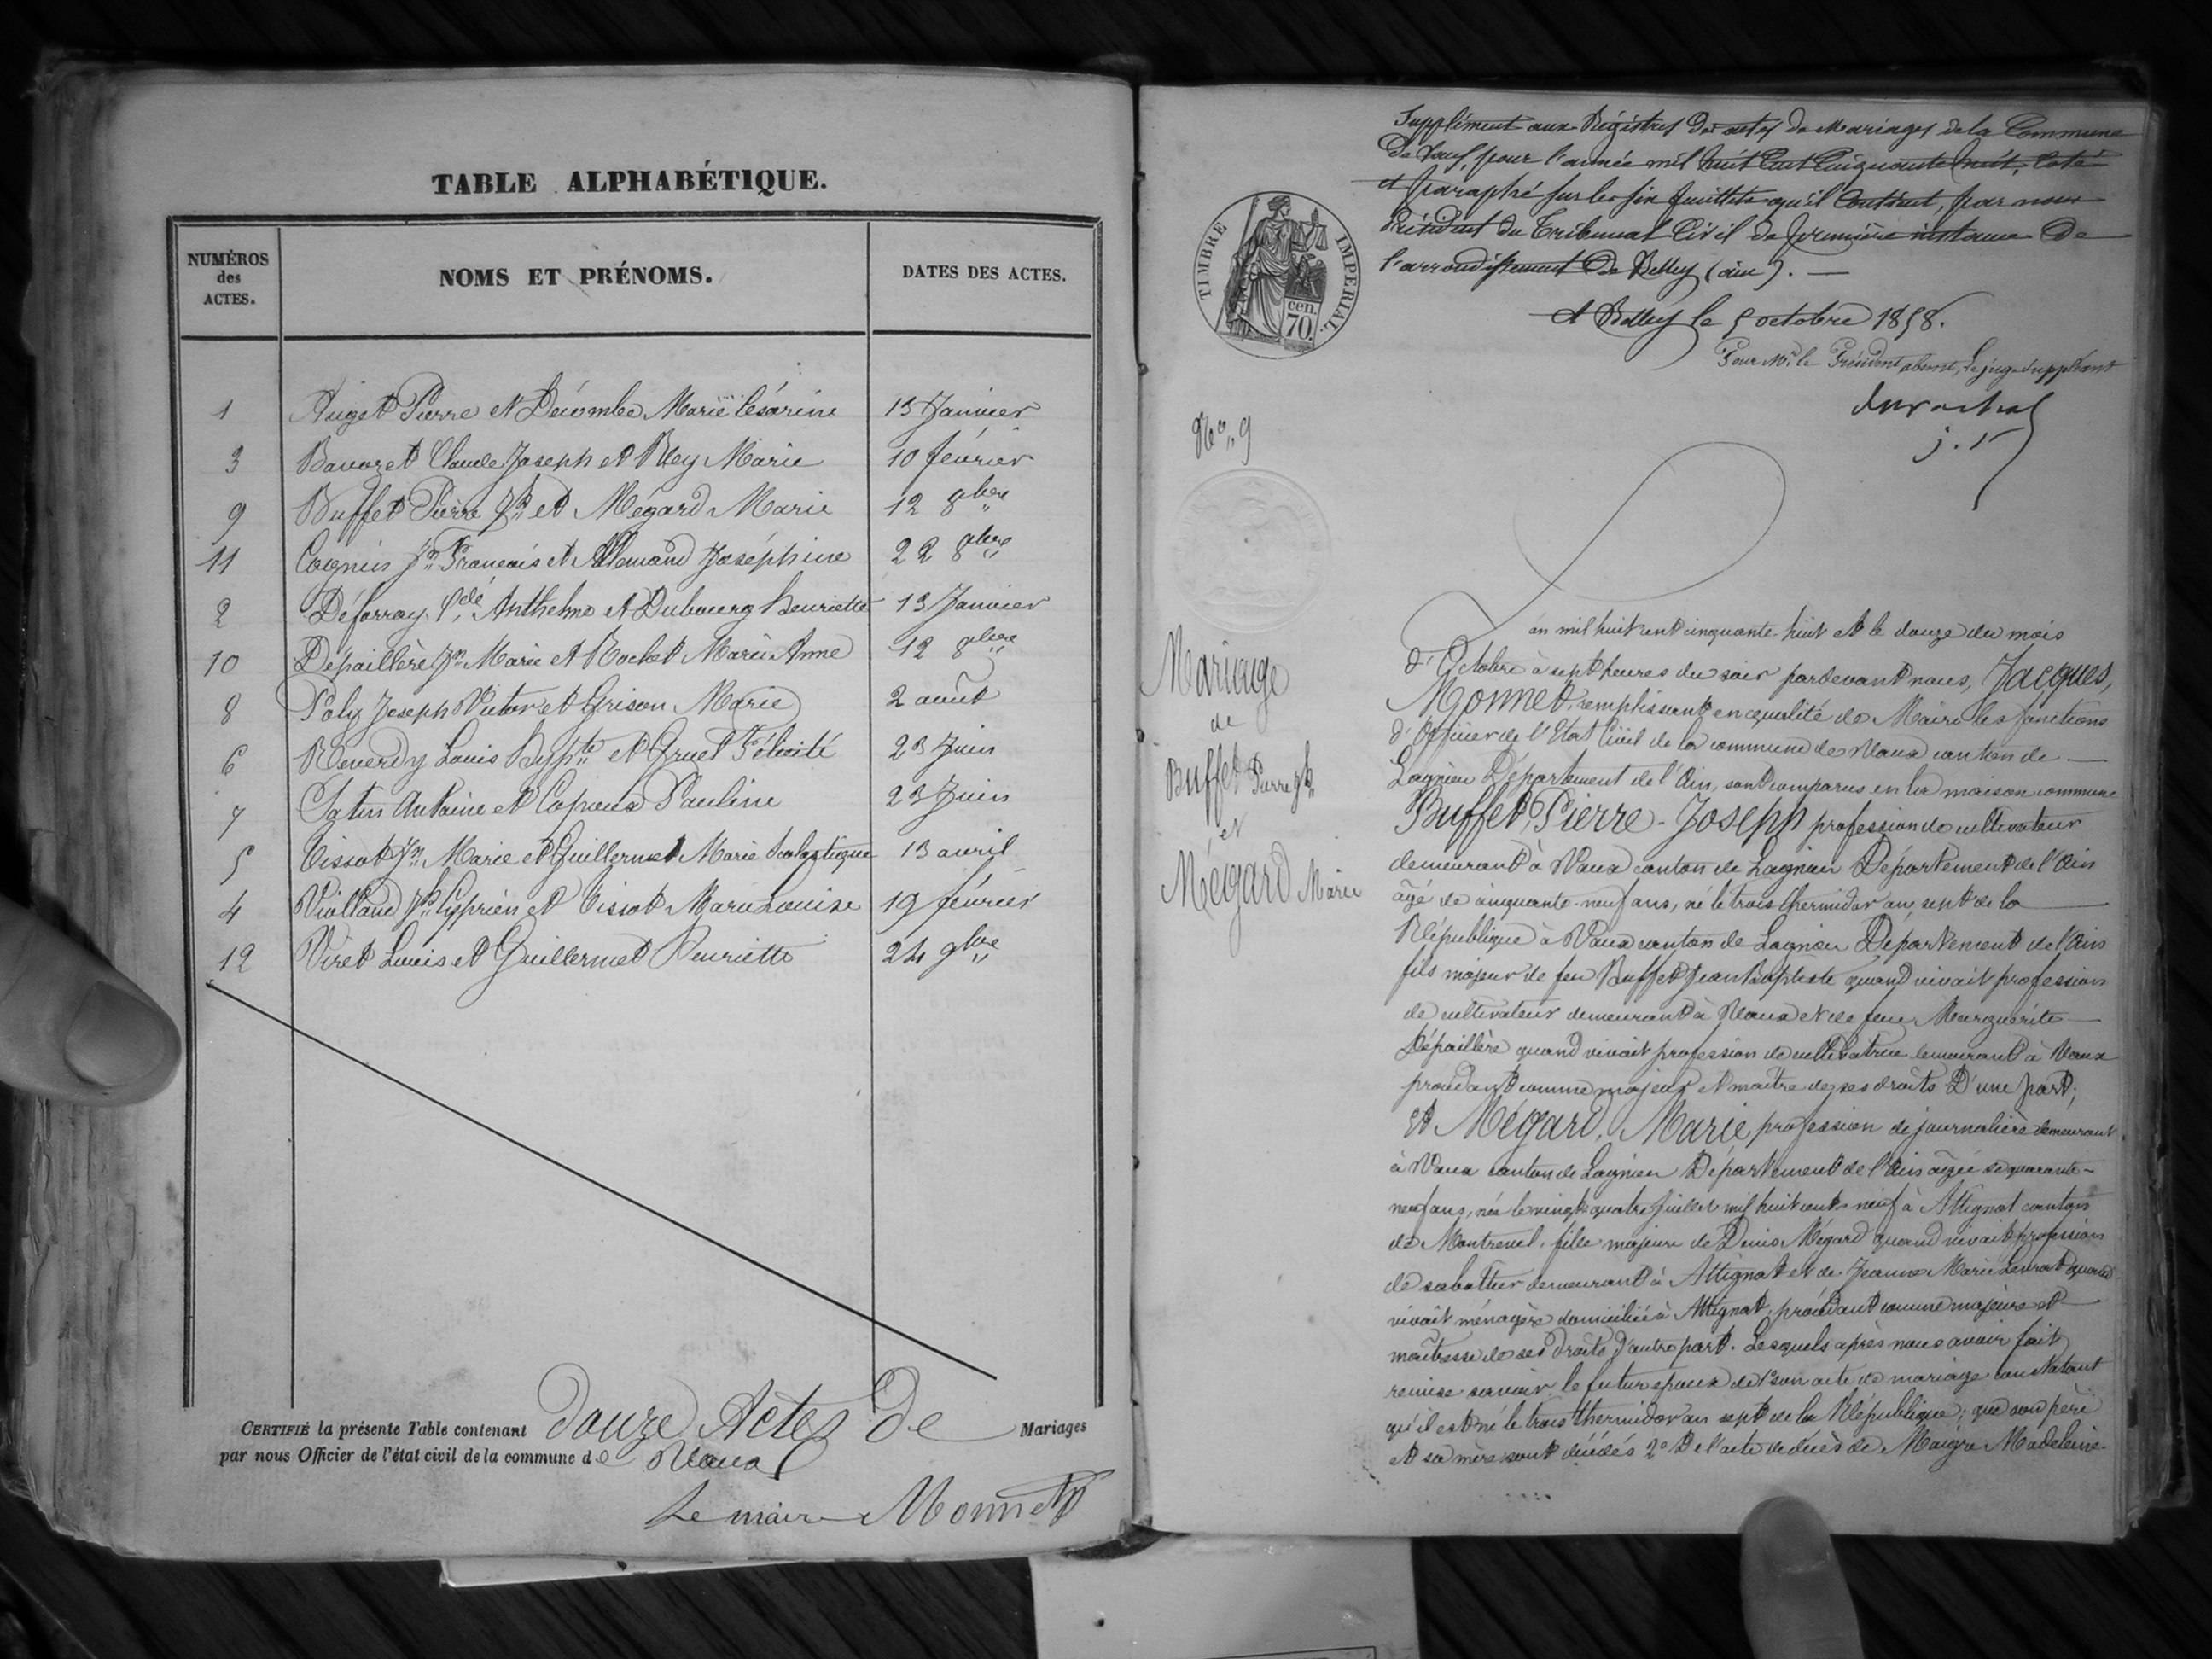 TABLE ALPHABÉTIQUE.
NUMÉROS des ACTES.
NOMS ET PRÉNOMS.
DATES DES ACTES.
1 Auget Pierre et Décombe Marie Césarine 13 Janvier
3 Bavozet Claude Joseph et Rey Marie 10 février
9 Buffet Pierre Jh et Mégard Marie 12 8bre
11 Cognin Jn François et Allemand Joséphine 22 8bre
2 Déforray Cde Anthelme et Dubourg henriette 13 Janvier
10 Dépaillère Jn Marie et Rochet Marie Anne 12 8bre
8 Poly Joseph Victor et Grison Marie 2 août
6 Reverdy Louis Hypte et Gruet Félicité 23 Juin
7 Satin Antoine et Pauline 23 Juin
5 Tissot Jn Marie et Guillermet Marie Scolastique 13 avril
4 Violland Jh Cyprien et Tissot Marie Louise 19 février
12 Viret Louis et Guillermet Henriette 24 9bre
CERTIFIÉ la présente Table contenant douze Actes de Mariages
par nous Officier de l'état civil de la commune de Vaux
Le maire Monnet
Supplément aux Régistres des actes de Mariages de la Commune
de Vaux, pour l'année mil huit Cent Cinquante huit, Coté
et paraphé sur les six feuillets qu'il Contient, par nous
Président du Tribunal Civil de première instance de
l'arrondissement de Belley (ain). —
A Belley le 5 octobre 1858.
Pour Mr. le Président absent, Le juge suppléant
TIMBRE IMPERIAL.
70. cen.
No. 9
Mariage
de
Buffet Pierre Jh
et
Mégard Marie
an mil huit cent cinquante-huit et le douze du mois
d'Octobre à sept heures du soir pardevant nous, Jacques,
Monnet, remplissant en qualité de Maire les fonctions
d'Officier de l'Etat Civil de la commune de Vaux, canton de —
Lagnieu Département de l'Ain, sont comparus en la maison commune
Buffet, Pierre-Joseph profession de cultivateur
demeurant à Vaux canton de Lagnieu Département de l'Ain
âgé de cinquante-neuf ans, né le trois thermidor an sept de la —
République à Vaux canton de Lagnieu, Département de l'Ain
fils majeur de feu Buffet Jean Baptiste quand vivait profession
de cultivateur demeurant à Vaux et de feue Marguérite —
Dépaillère quand vivait profession de cultivatrice demeurant à Vaux
procédant comme majeur et maître de ses droits D'une part;
Et Mégard, Marie, profession de journalière demeurant
à Vaux canton de Lagnieu Département de l'Ain âgée de quarante-
neuf ans, née le vingt quatre Juillet mil huit cent neuf à Attignat canton
de Montrevel, fille majeure de Denis Mégard quand vivait profession
de sabottier demeurant à Attignat et de Jeanne Marie Levrat quand
vivait ménagère domiciliée à Attignat, procédant comme majeure et —
maîtresse de ses droits D'autre part. Lesquels après nous avoir fait
remise savoir le futur epoux de 1° son acte de mariage constatant
qu'il est né le trois thermidor an sept de la République; que son père
et sa mère sont décédés 2° De l'acte de décès de Maigre Madeleine